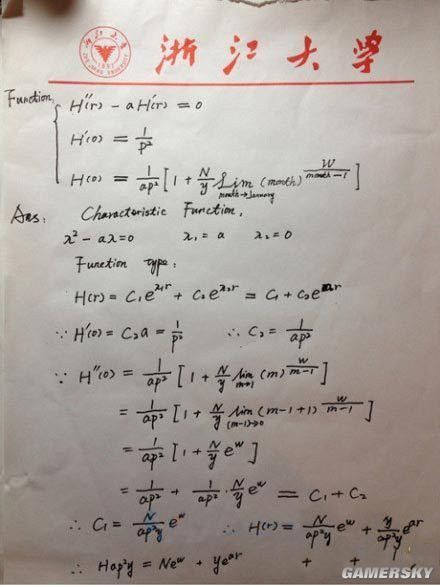 浙江大学
Function,
H''(r) - aH'(r) = 0
H'(0) = 1/p²
H(0) = 1/ap² [1 + N/y Lim month→January (month)^(W/(month-1))]
Ans: Characteristic Function,
x² - ax = 0 x₁ = a x₂ = 0
Function type:
H(r) = C₁e^(x₁r) + C₂e^(x₂r) = C₁ + C₂e^(ar)
∵ H'(0) = C₂a = 1/p² ∴ C₂ = 1/ap²
∵ H''(0) = 1/ap² [1 + N/y lim m→1 (m)^(w/(m-1))]
= 1/ap² [1 + N/y lim (m-1)→0 (m-1+1)^(w/(m-1))]
= 1/ap² [1 + N/y e^w]
= 1/ap² + 1/ap² · N/y e^w = C₁ + C₂
∴ C₁ = N/ap²y e^w ∴ H(r) = N/ap²y e^w + y/ap²y e^(ar)
∴ Hap²y = Ne^w + ye^(ar)
GAMERSKY